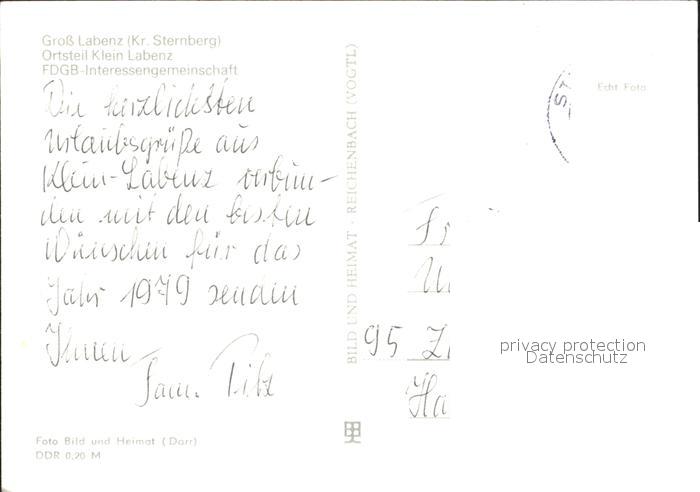 Groß Labenz (Kr. Sternberg)
Ortsteil Klein Labenz
FDGB-Interessengemeinschaft
Die herzlichsten
Urlaubsgrüße aus
Klein-Labenz verbin-
den mit den besten
Wünschen für das
Jahr 1979 senden
Ihnen
Fam. Pilz
Foto Bild und Heimat (Darr)
DDR 0,20 M
BILD UND HEIMAT · REICHENBACH (VOGTL)
Echt Foto
-St.
95
Ha
privacy protection
Datenschutz